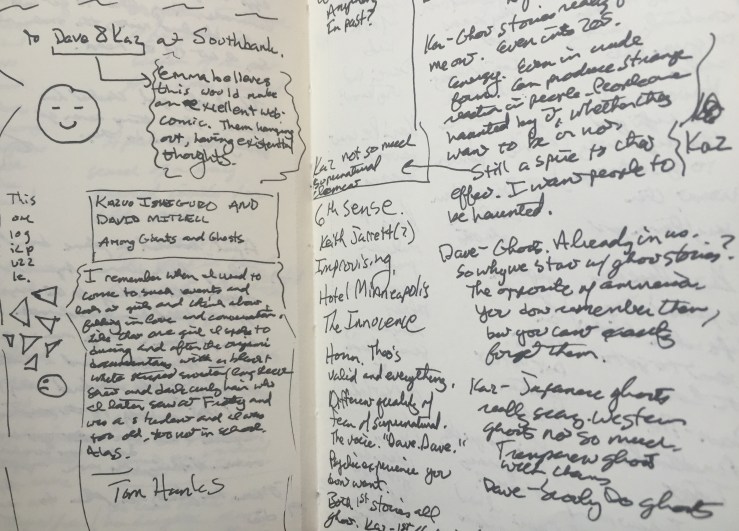 to Dave & Kaz at Southbank.
Emma believes
this would make
an excellent web-
comic. Them hanging
out, having existential
thoughts.
This
one
log
ic
puzz
le.
Kazuo Isheguro and
David Mitzell
Among Giants and Ghosts
I remember when I used to
come to such events and
look at girls and think about
falling in love and conversation.
Like that one girl I spoke to
during and after the
documentary with a black
white striped sweater/long sleeve
shirt and dark curly hair who
I later saw at
was a student and I was
too old, too not in school.
Alas.
Tom Hanks
Anything
In past?
Kaz not so much
supernatural
element
6th sense.
Keith Jarrett(?)
Improvising,
Hotel Minneapolis
The Innocence
Hmm. Tho's
valid and everything.
Different quality of
fear of supernatural.
The voice. "Dave. Dave."
Psychic experience you
don't want.
Both 1st stories all
ghost. Kaz-1st
Kaz- Ghost stories really
me out. Even into 20s.
energy. Even in crude
form. Can produce strange
reaction in people. People are
haunted by it, whether they
want to be or not.
Still a spire to that
effect. I want people to
be haunted.
Kaz
Dave- Ghosts. Already in us.
So why we start w/ ghost stories?
The opposite of amnesia
You don't remember them,
but you can't exactly
forget them.
Kaz- Japanese ghosts
really scary. Western
ghosts not so much.
Transparent ghost
with chains
Dave- Scooby Do ghosts